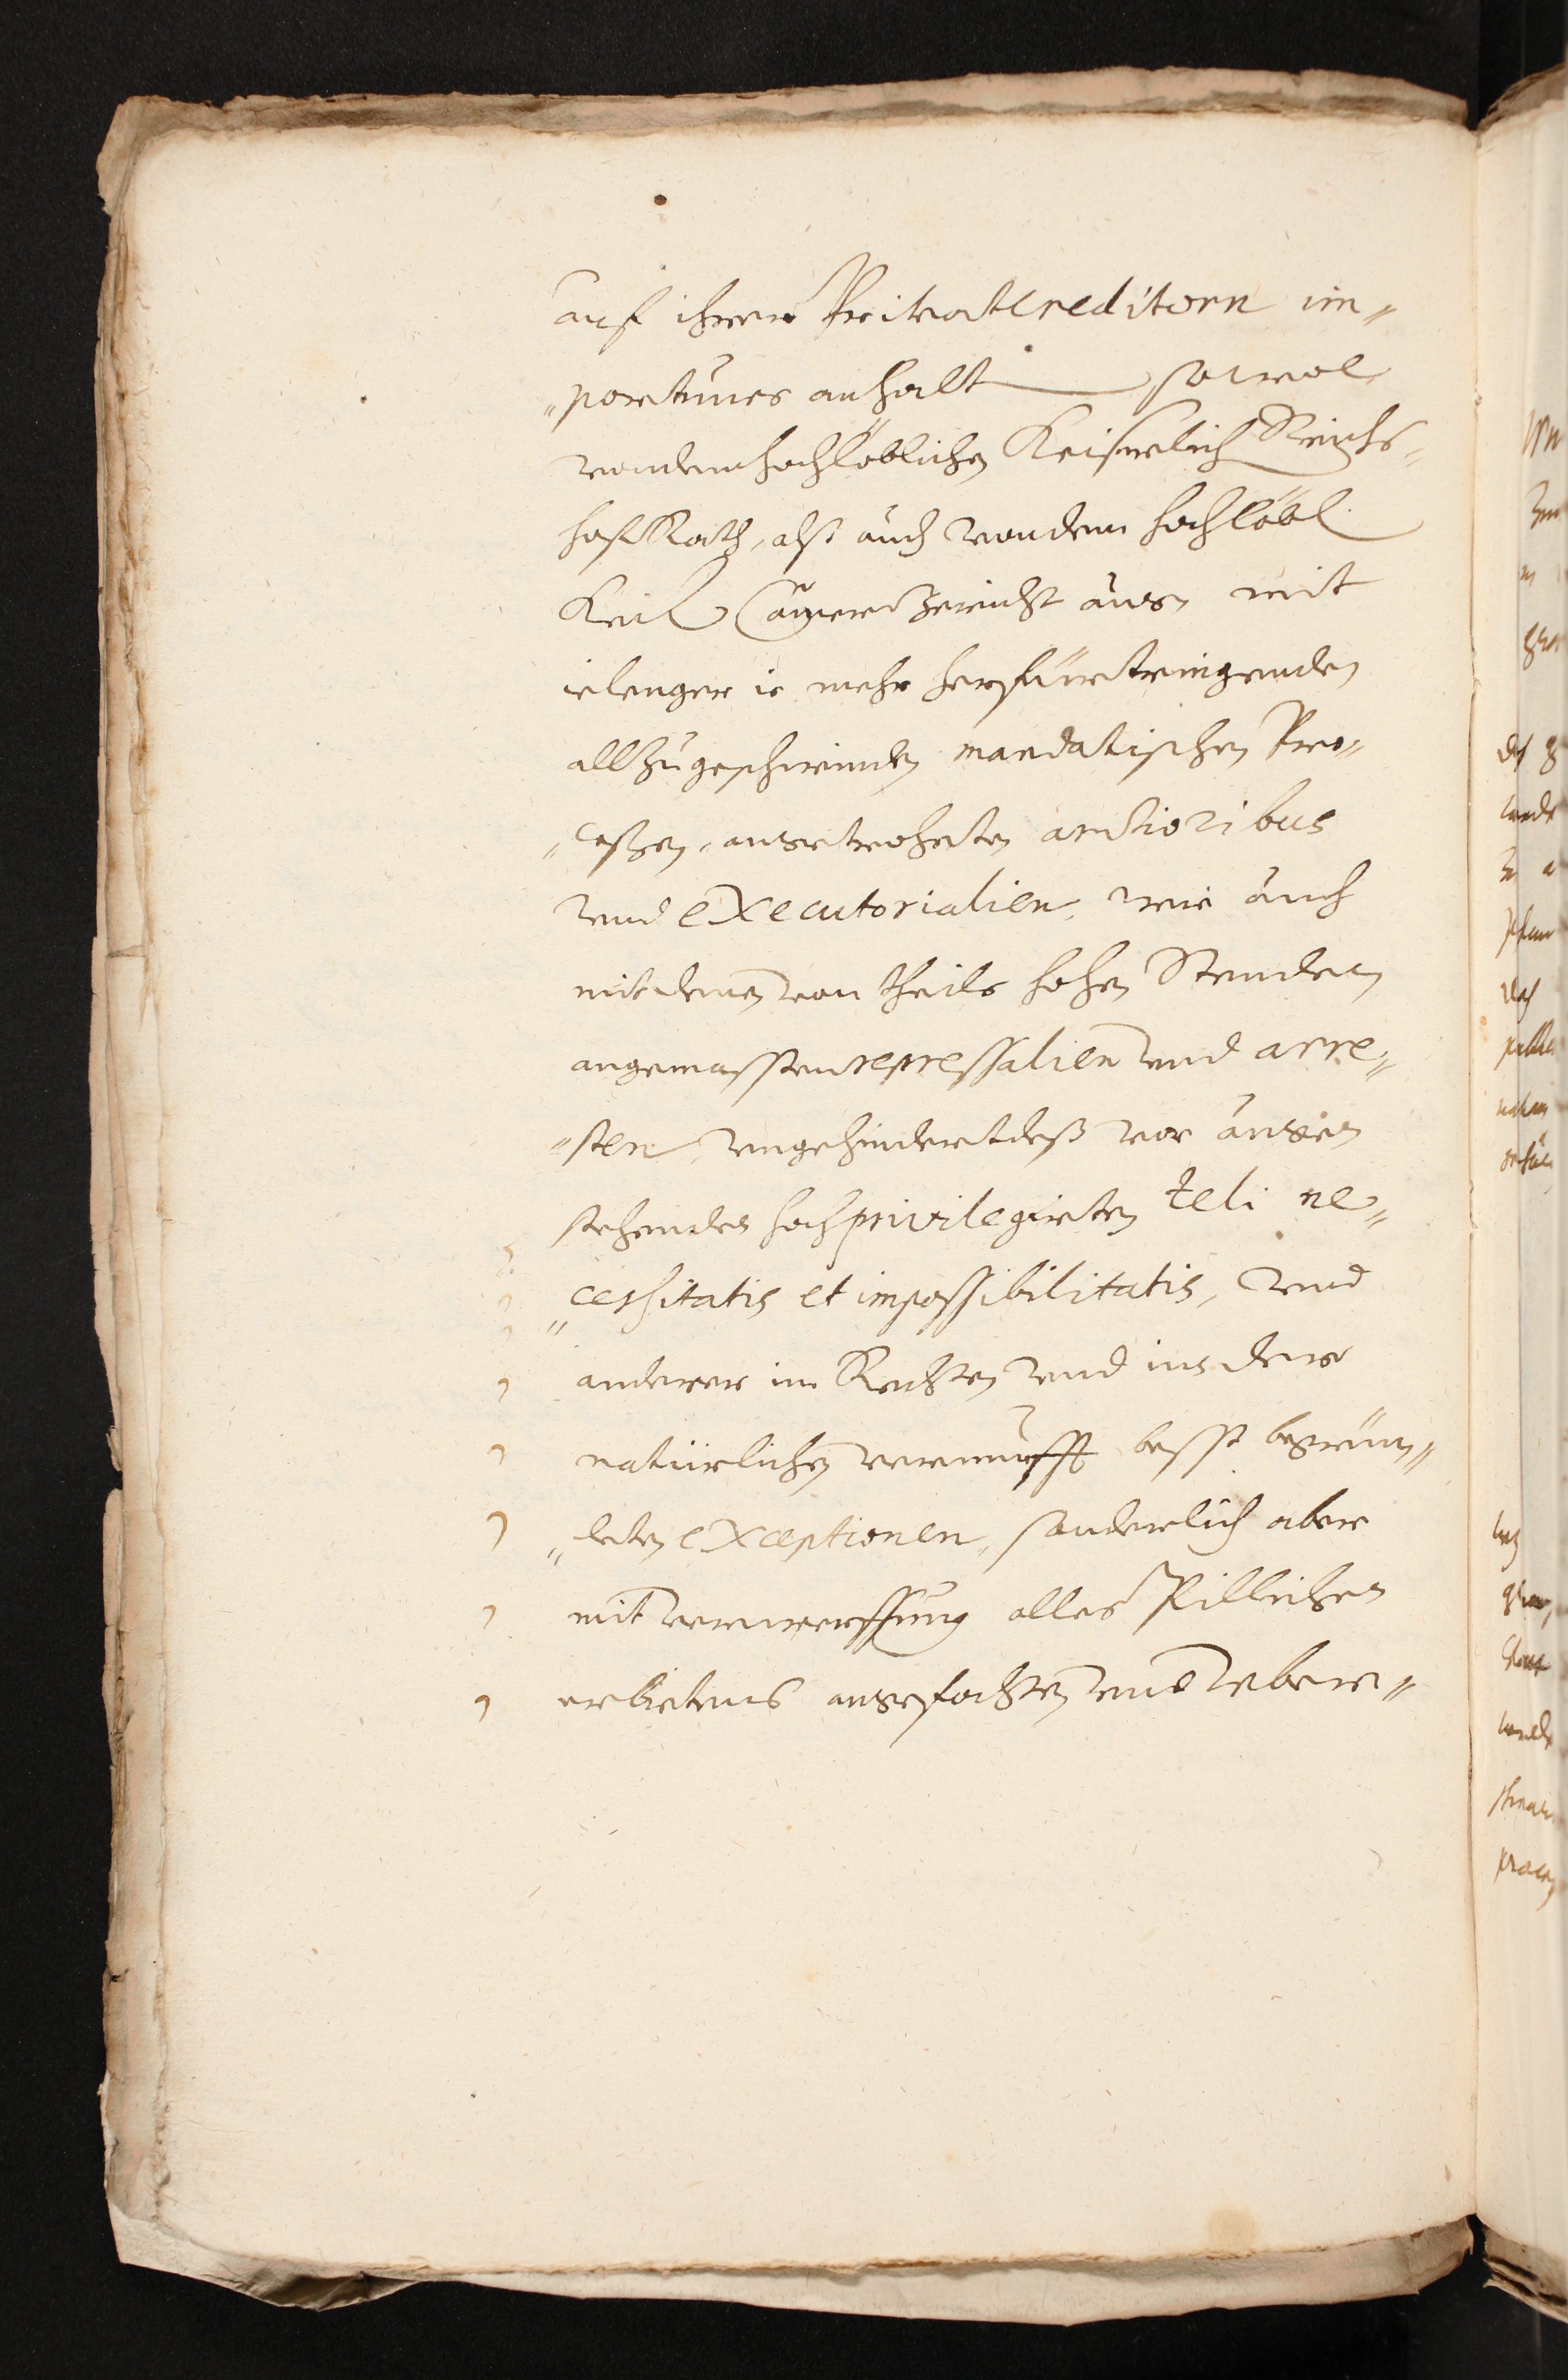 auf ihrer Privatcreditorn im„
„portunes anhalt sowol
von dem hochlöblichen Keiserlich Reichs„
hof Rath, alß auch von dem hochlöbl.
Keis. Camer Gericht aus, mit
ielenger ie mehr herfür tringenden
allzugeschwinden mandatischen Pro„
„ceßen, angetroheten arctioribus
und executorialien, wie auch
mit denen von theils hohen Stenden
angemassten repressalien und arre„
„sten, ungehindert deß vor augen
stehenden hochprivilegirten teli ne„
„cessitatis et impossibilitatis, und
anderer im Rechten und in der
natürlichen vernunfft best begrün„
„deten exceptionen, sonderlich aber
mit verwerffung alles Pillichen
erbietens angefochten und über„